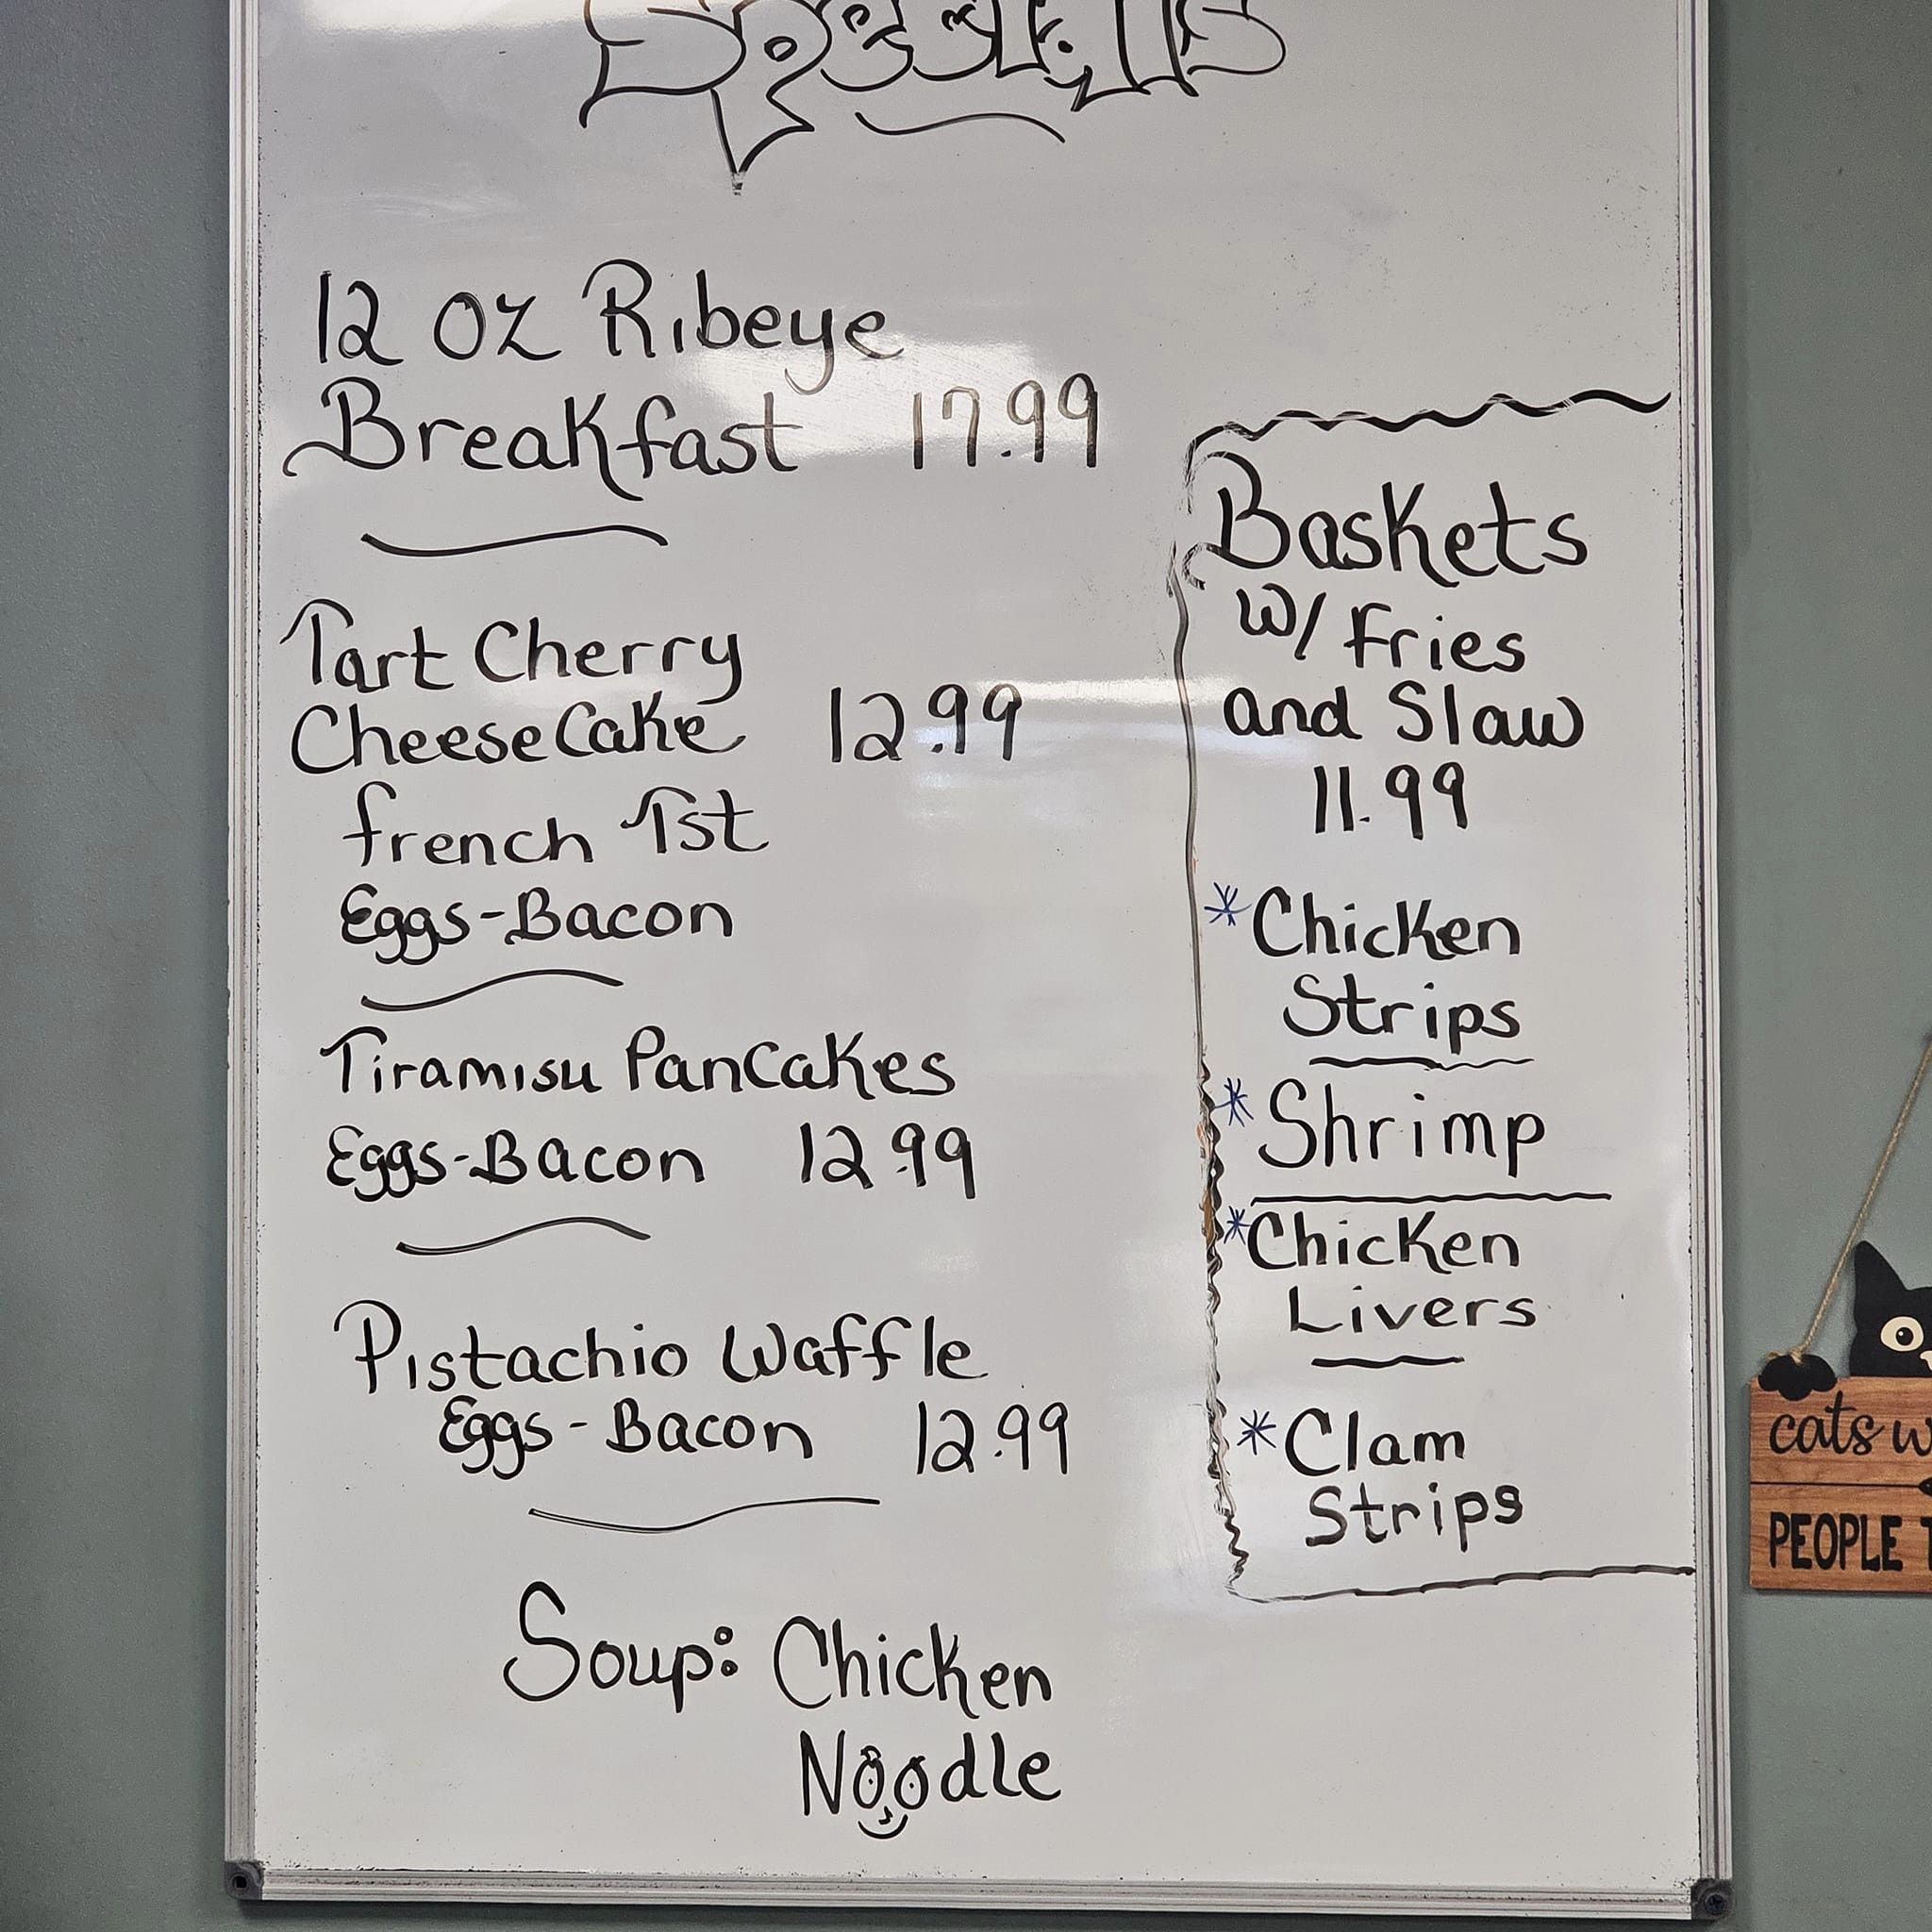 Specials
12 Oz Ribeye
Breakfast 17.99
Tart Cherry
CheeseCake 12.99
french Tst
Eggs-Bacon
Tiramisu PanCakes
Eggs-Bacon 12.99
Pistachio Waffle
Eggs - Bacon 12.99
Soup: Chicken
Noodle
Baskets
W/ Fries
and Slaw
11.99
*Chicken
Strips
*Shrimp
*Chicken
Livers
*Clam
Strips
cats w
PEOPLE T